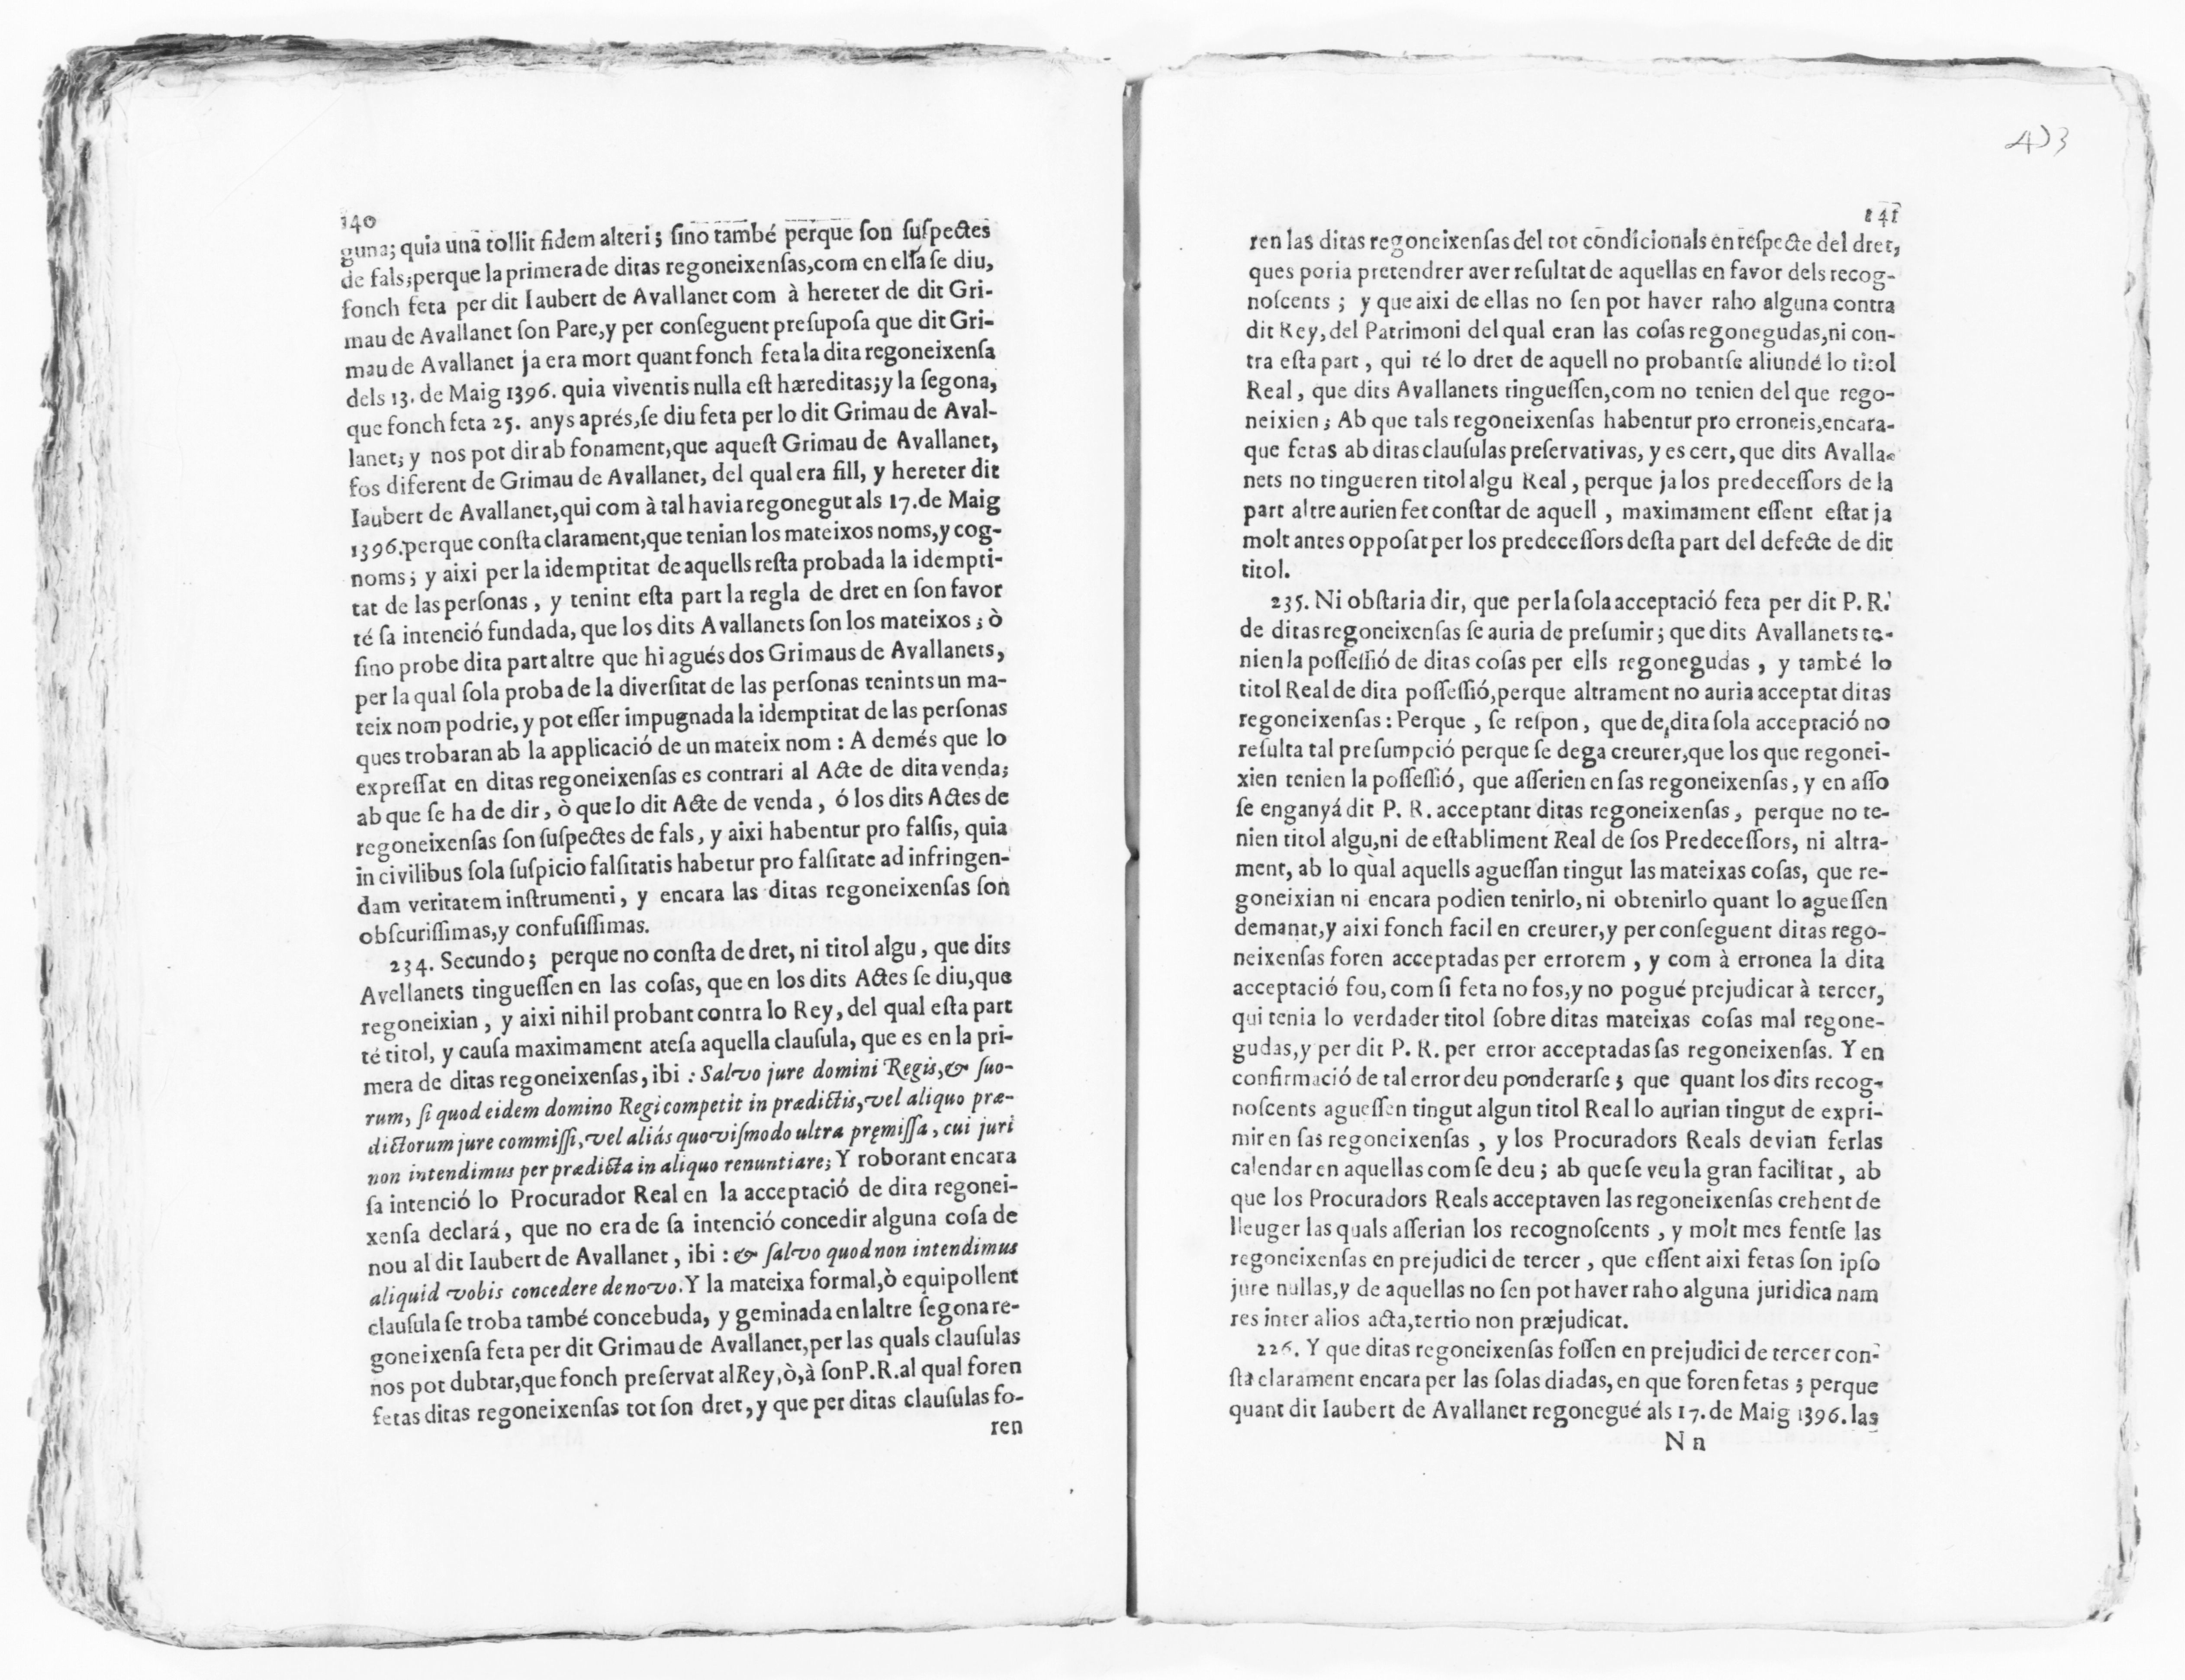 140
guna; quia una tollit fidem alteri; ſino també perque ſon ſuſpectes
de fals; perque la primera de ditas regoneixenſas, com en ella ſe diu,
fonch feta per dit Iaubert de Avallanet com à hereter de dit Gri-
mau de Avallanet ſon Pare, y per conſeguent preſupoſa que dit Gri-
mau de Avallanet ja era mort quant fonch feta la dita regoneixenſa
dels 13. de Maig 1396. quia viventis nulla eſt hæreditas; y la ſegona,
que fonch feta 25. anys aprés, ſe diu feta per lo dit Grimau de Aval-
lanet; y nos pot dir ab fonament, que aqueſt Grimau de Avallanet,
fos diferent de Grimau de Avallanet, del qual era fill, y hereter dit
Iaubert de Avallanet, qui com à tal havia regonegut als 17. de Maig
1396. perque conſta clarament, que tenian los mateixos noms, y cog-
noms; y aixi per la idemptitat de aquells reſta probada la idempti-
tat de las perſonas, y tenint eſta part la regla de dret en ſon favor
té ſa intenció fundada, que los dits Avallanets ſon los mateixos; ò
ſino probe dita part altre que hi agués dos Grimaus de Avallanets,
per la qual ſola proba de la diverſitat de las perſonas tenints un ma-
teix nom podrie, y pot eſſer impugnada la idemptitat de las perſonas
ques trobaran ab la applicació de un mateix nom: A demés que lo
expreſſat en ditas regoneixenſas es contrari al Acte de dita venda;
ab que ſe ha de dir, ò que lo dit Acte de venda, ó los dits Actes de
regoneixenſas ſon ſuſpectes de fals, y aixi habentur pro falſis, quia
in civilibus ſola ſuſpicio falſitatis habetur pro falſitate ad infringen-
dam veritatem inſtrumenti, y encara las ditas regoneixenſas ſon
obſcuriſſimas, y confuſiſſimas.
234. Secundo; perque no conſta de dret, ni titol algu, que dits
Avellanets tingueſſen en las coſas, que en los dits Actes ſe diu, que
regoneixian, y aixi nihil probant contra lo Rey, del qual eſta part
té titol, y cauſa maximament ateſa aquella clauſula, que es en la pri-
mera de ditas regoneixenſas, ibi: Salvo jure domini Regis, & ſuo-
rum, ſi quod eidem domino Regi competit in prædictis, vel aliquo præ-
dictorum jure commiſſi, vel aliás quoviſmodo ultra pręmiſſa, cui juri
non intendimus per prædicta in aliquo renuntiare; Y roborant encara
ſa intenció lo Procurador Real en la acceptació de dita regonei-
xenſa declará, que no era de ſa intenció concedir alguna coſa de
nou al dit Iaubert de Avallanet, ibi: & ſalvo quod non intendimus
aliquid vobis concedere de novo. Y la mateixa formal, ò equipollent
clauſula ſe troba també concebuda, y geminada en laltre ſegona re-
goneixenſa feta per dit Grimau de Avallanet, per las quals clauſulas
nos pot dubtar, que fonch preſervat al Rey, ò, à ſon P. R. al qual foren
fetas ditas regoneixenſas tot ſon dret, y que per ditas clauſulas fo-
ren
141
ren las ditas regoneixenſas del tot condicionals en reſpecte del dret,
ques poria pretendrer aver reſultat de aquellas en favor dels recog-
noſcents; y que aixi de ellas no ſen pot haver raho alguna contra
dit Rey, del Patrimoni del qual eran las coſas regonegudas, ni con-
tra eſta part, qui té lo dret de aquell no probantſe aliundé lo titol
Real, que dits Avallanets tingueſſen, com no tenien del que rego-
neixien; Ab que tals regoneixenſas habentur pro erroneis, encara-
que fetas ab ditas clauſulas preſervativas, y es cert, que dits Avalla-
nets no tingueren titol algu Real, perque ja los predeceſſors de la
part altre aurien fet conſtar de aquell, maximament eſſent eſtat ja
molt antes oppoſat per los predeceſſors deſta part del defecte de dit
titol.
235. Ni obſtaria dir, que per la ſola acceptació feta per dit P. R.
de ditas regoneixenſas ſe auria de preſumir; que dits Avallanets te-
nien la poſſeſſió de ditas coſas per ells regonegudas, y també lo
titol Real de dita poſſeſſió, perque altrament no auria acceptat ditas
regoneixenſas: Perque, ſe reſpon, que de, dita ſola acceptació no
reſulta tal preſumpció perque ſe dega creurer, que los que regonei-
xien tenien la poſſeſſió, que aſſerien en ſas regoneixenſas, y en aſſo
ſe enganyá dit P. R. acceptant ditas regoneixenſas, perque no te-
nien titol algu, ni de eſtabliment Real de ſos Predeceſſors, ni altra-
ment, ab lo qual aquells agueſſan tingut las mateixas coſas, que re-
goneixian ni encara podien tenirlo, ni obtenirlo quant lo agueſſen
demanat, y aixi fonch facil en creurer, y per conſeguent ditas rego-
neixenſas foren acceptadas per errorem, y com à erronea la dita
acceptació fou, com ſi feta no fos, y no pogué prejudicar à tercer,
qui tenia lo verdader titol ſobre ditas mateixas coſas mal regone-
gudas, y per dit P. R. per error acceptadas ſas regoneixenſas. Y en
confirmació de tal error deu ponderarſe; que quant los dits recog-
noſcents agueſſen tingut algun titol Real lo aurian tingut de expri-
mir en ſas regoneixenſas, y los Procuradors Reals devian ferlas
calendar en aquellas com ſe deu; ab que ſe veu la gran facilitat, ab
que los Procuradors Reals acceptaven las regoneixenſas crehent de
lleuger las quals aſſerian los recognoſcents, y molt mes fentſe las
regoneixenſas en prejudici de tercer, que eſſent aixi fetas ſon ipſo
jure nullas, y de aquellas no ſen pot haver raho alguna juridica nam
res inter alios acta, tertio non præjudicat.
226. Y que ditas regoneixenſas foſſen en prejudici de tercer con-
ſta clarament encara per las ſolas diadas, en que foren fetas; perque
quant dit Iaubert de Avallanet regonegué als 17. de Maig 1396. las
N n